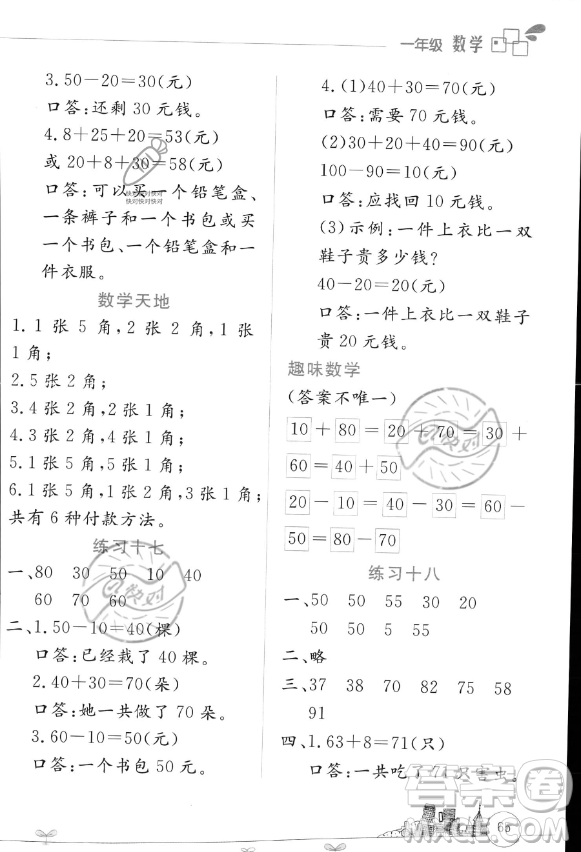 一年级 数学
3.50－20＝30(元)
口答:还剩 30 元钱。
4.8＋25＋20＝53(元)
或 20＋8＋30＝58(元)
口答:可以买一个铅笔盒、
一条裤子和一个书包或买
一个书包、一个铅笔盒和一
件衣服。
数学天地
1.1 张 5 角,2 张 2 角,1 张
1 角;
2.5 张 2 角;
3.4 张 2 角,2 张 1 角;
4.1 张 5 角,5 张 1 角;
5.1 张 5 角,1 张 5 角;
6.1 张 5 角,1 张 2 角,3 张 1 角;
共有 6 种付款方法。
练习十七
一、80 30 50 10 40
60 70 60
二、1.50－10＝40(棵)
口答:已经栽了 40 棵。
2.40＋30＝70(朵)
口答:她一共做了 70 朵。
3.60－10＝50(元)
口答:一个书包 50 元。
4.(1)40＋30＝70(元)
口答:需要 70 元钱。
(2)30＋20＋40＝90(元)
100－90＝10(元)
口答:应找回 10 元钱。
(3)示例:一件上衣比一双
鞋子贵多少钱?
40－20＝20(元)
口答:一件上衣比一双鞋子
贵 20 元钱。
趣味数学
(答案不唯一)
10＋80＝20＋70＝30＋
60＝40＋50
20－10＝30－20＝60－
50＝80－70
练习十八
一、50 50 55 30 20
50 50 5 45
二、略
三、37 38 68 70 95
91
四、1.63＋8＝71(只)
口答:一共吃了 71 只害虫。
快对快对
快对快对快对
答案圈
65